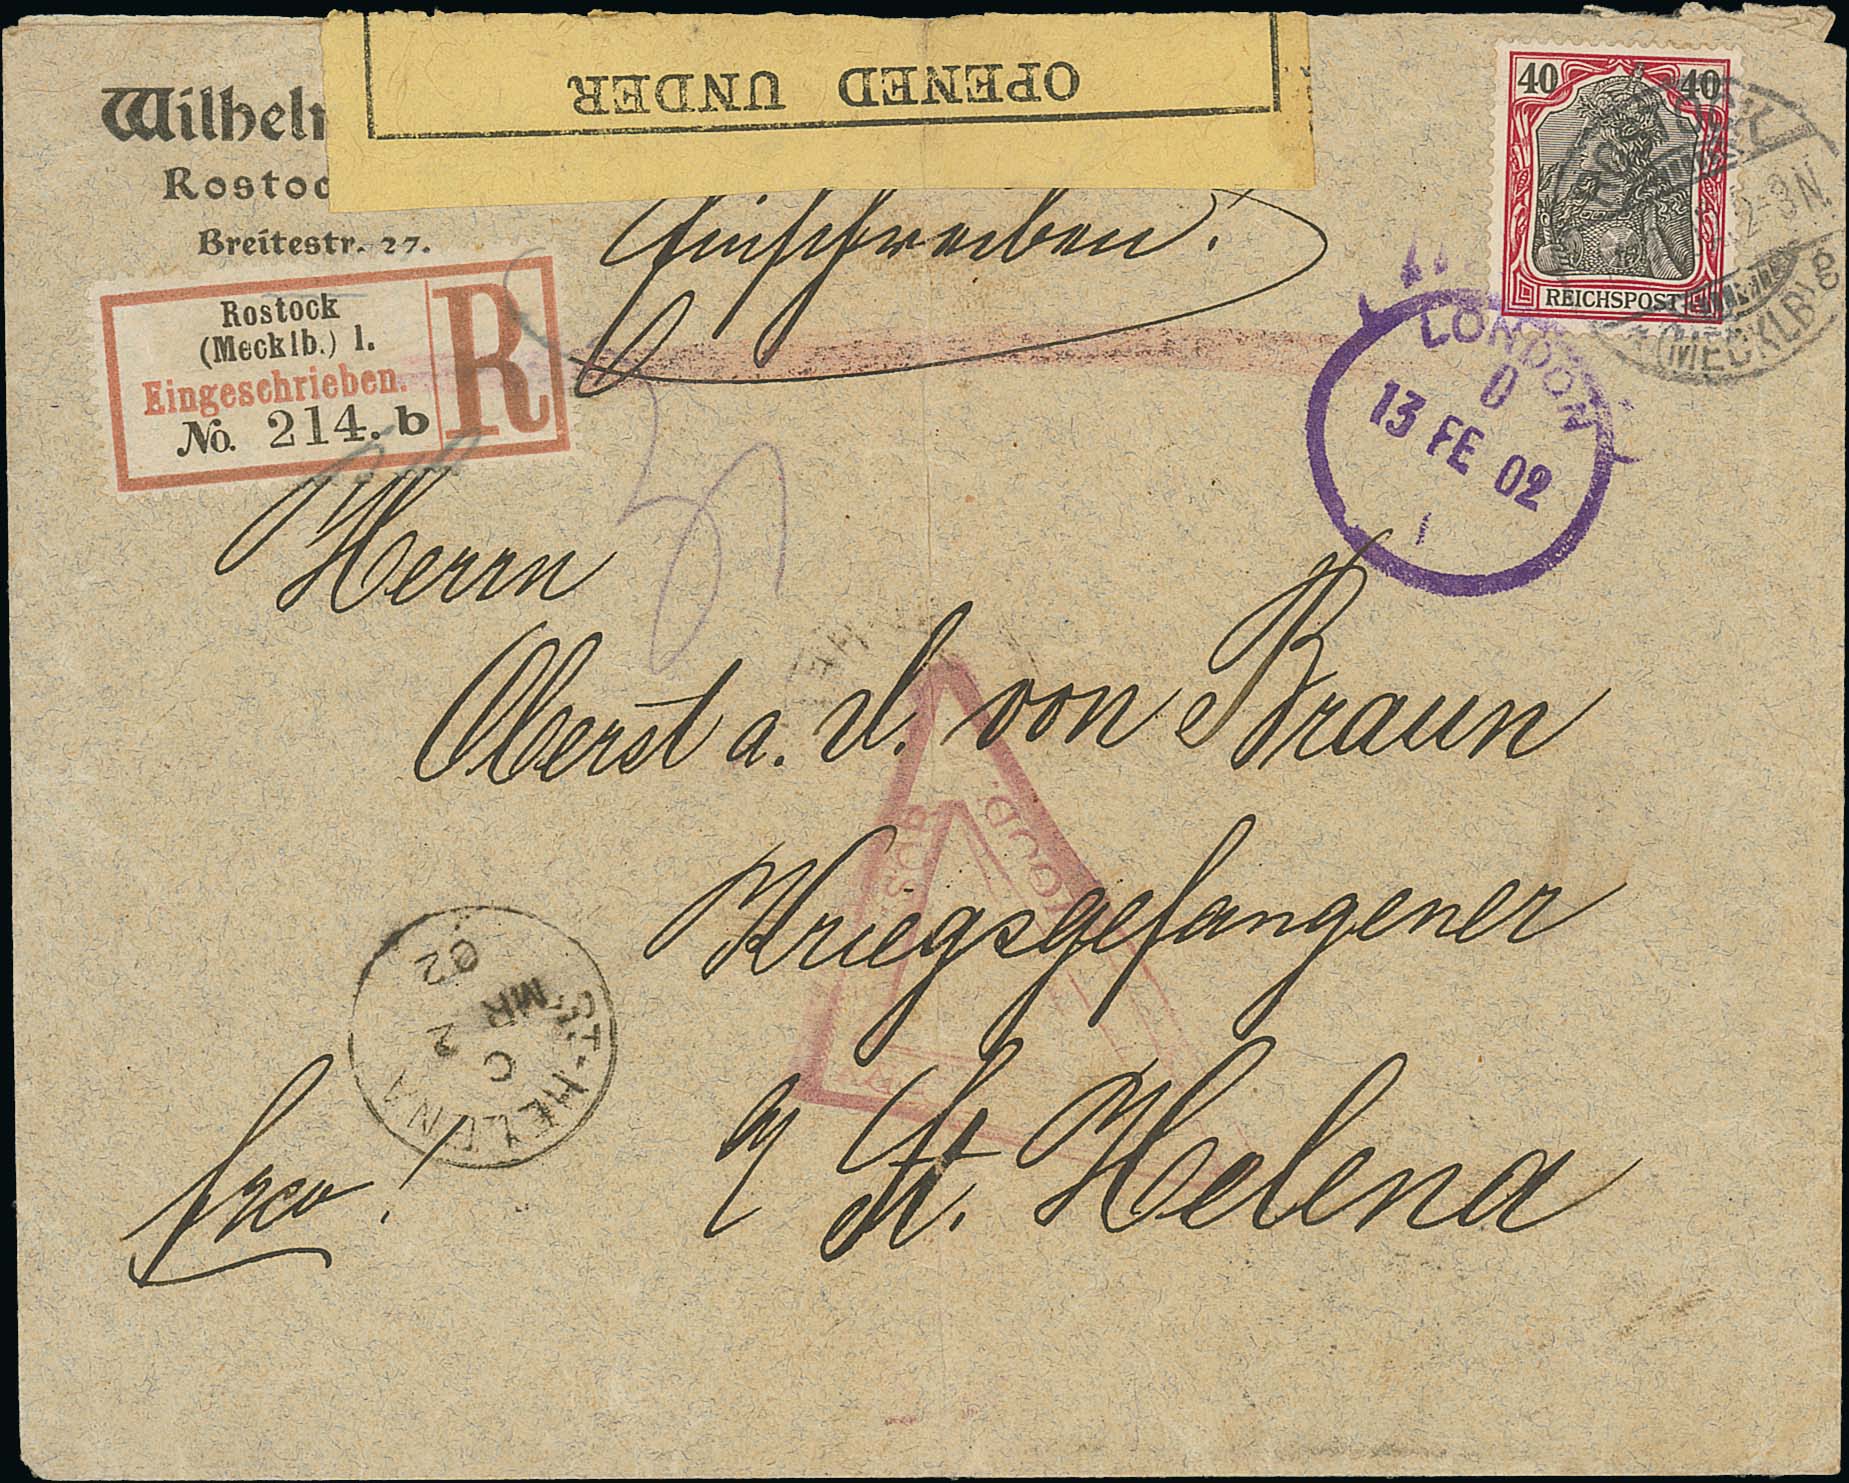 OPENED UNDER
Rostoc
Breitestr. 27.
40 40
REICHSPOST
(MECKLB)
2-3N
Einschreiben.
Rostock
(Mecklb.) 1.
Eingeschrieben.
No. 214. b
R
LONDON
13 FE 02
Herrn
Oberst a. d. von Braun
Kriegsgefangener
St. Helena
ST. HELENA
C
MR 2
02
frco!